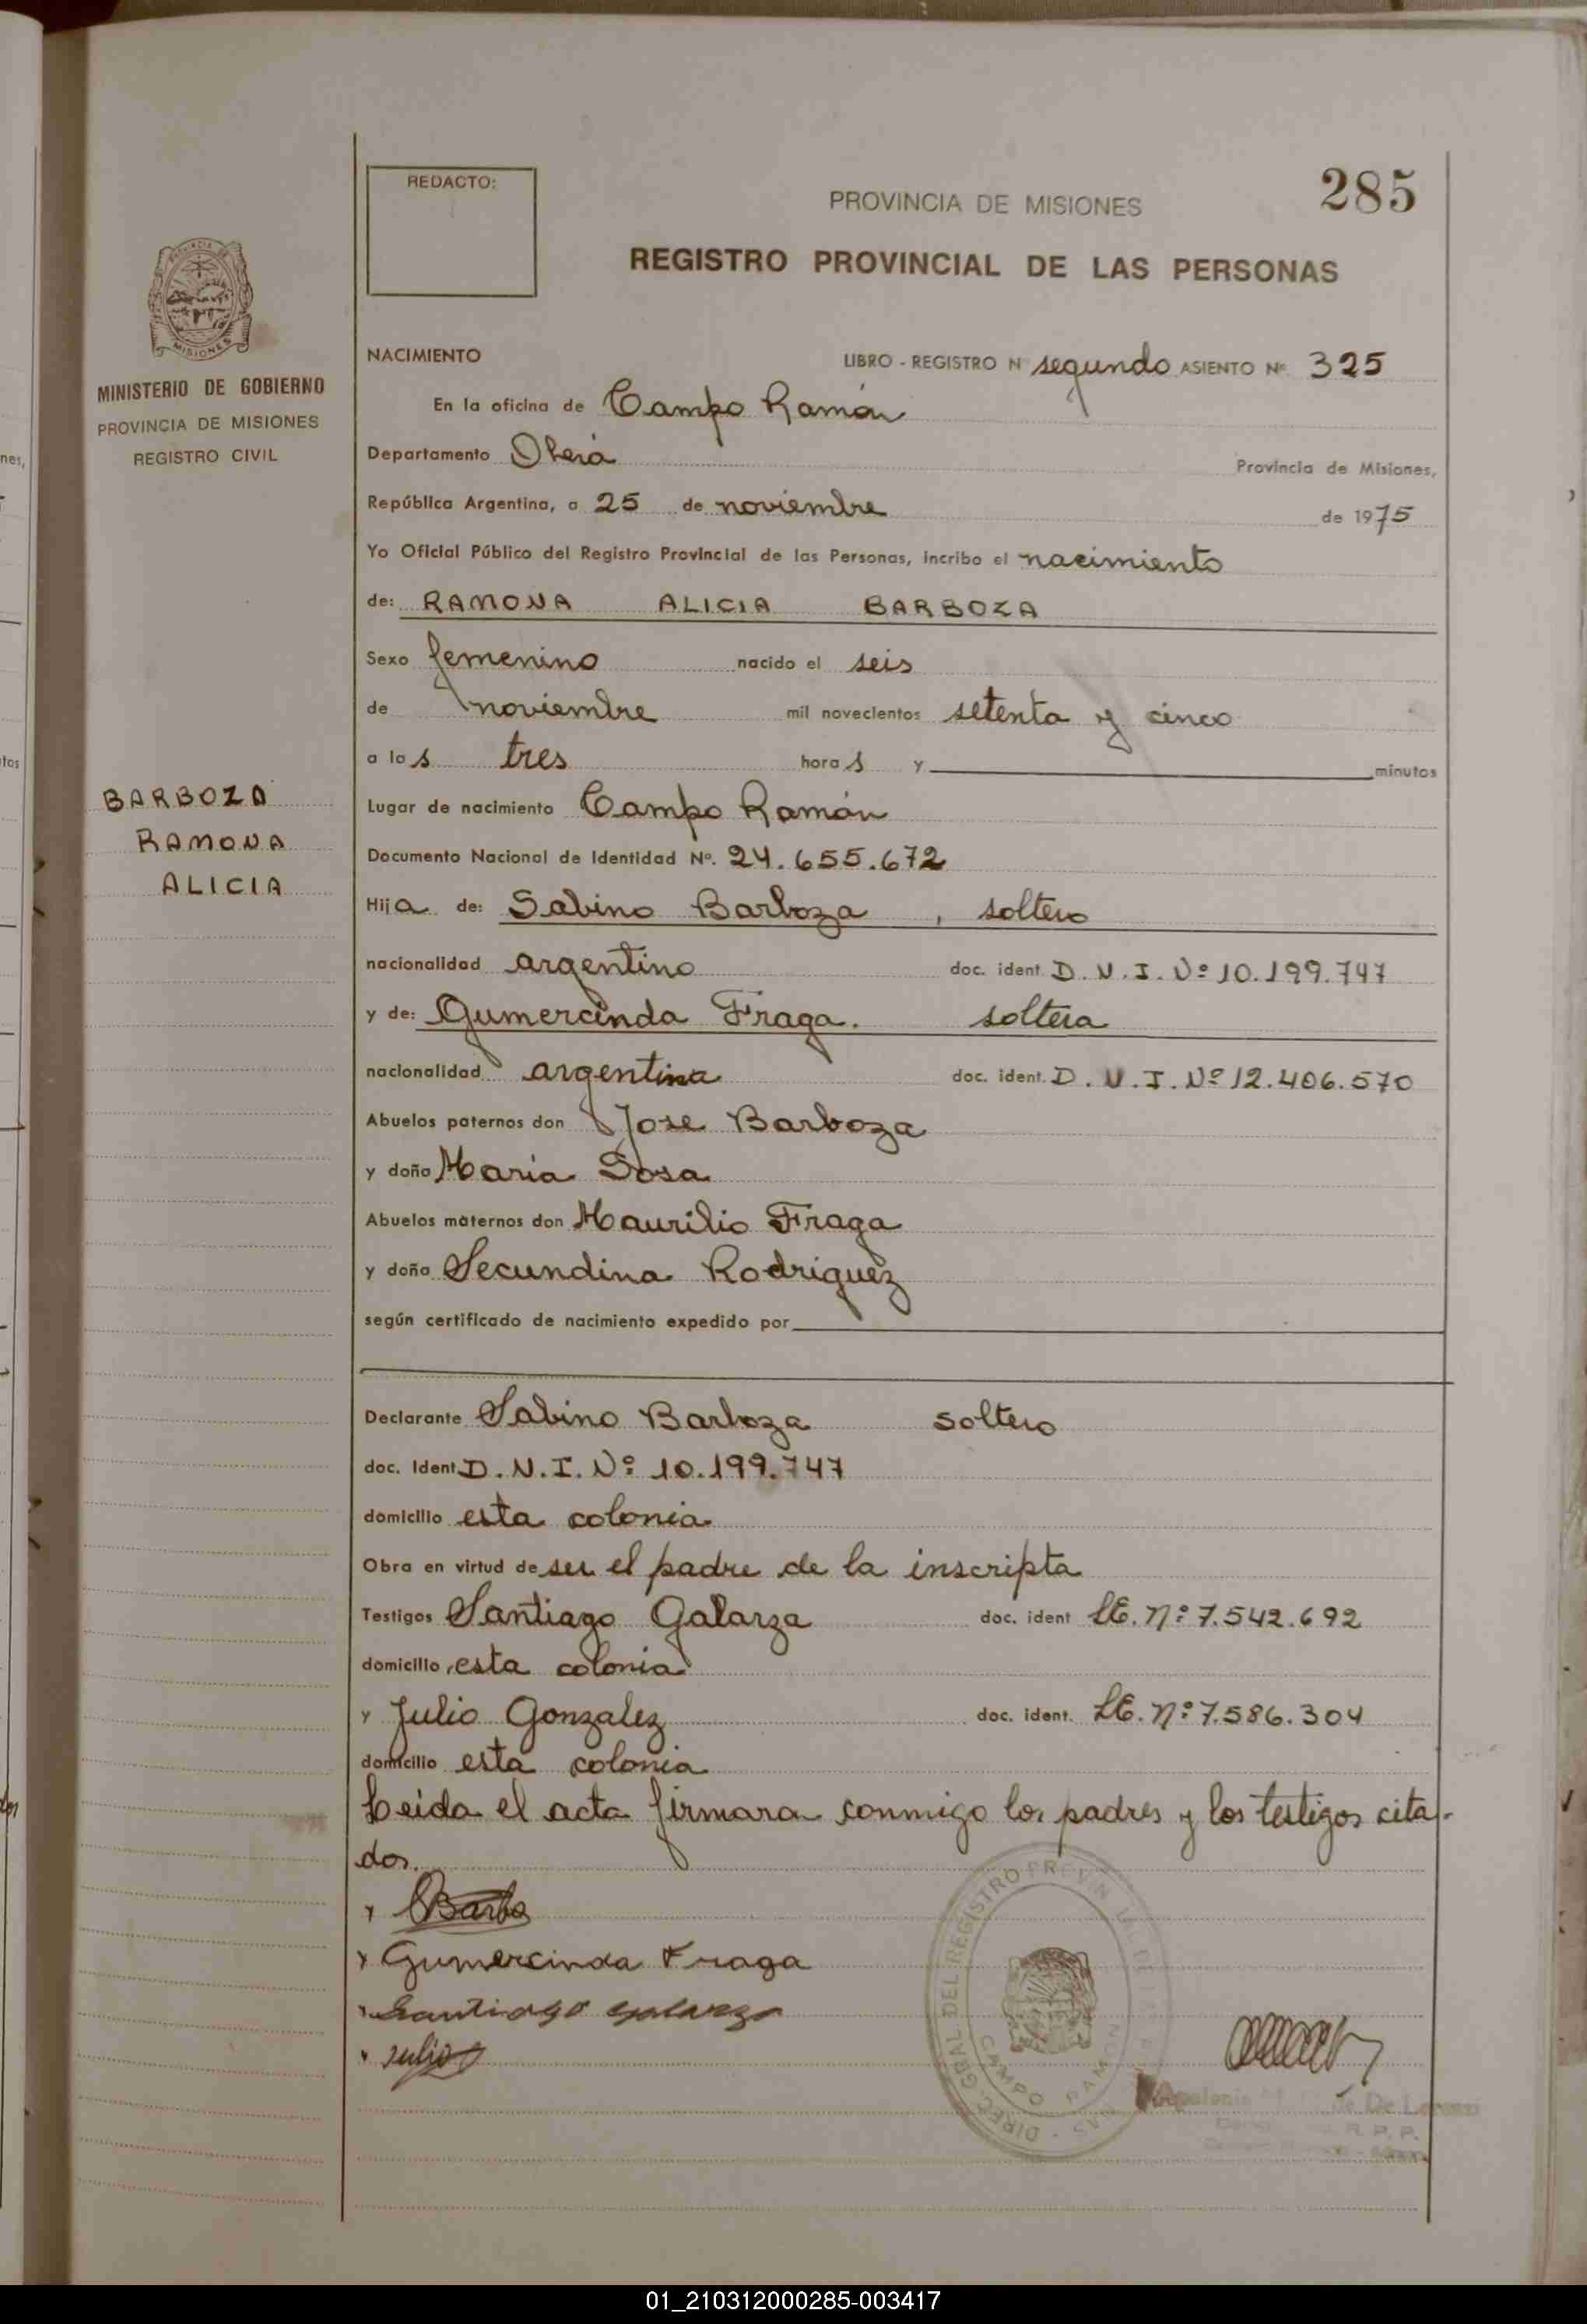 REDACTO:
PROVINCIA DE MISIONES
285
REGISTRO PROVINCIAL DE LAS PERSONAS
MISIONES
MINISTERIO DE GOBIERNO
PROVINCIA DE MISIONES
REGISTRO CIVIL
NACIMIENTO LIBRO - REGISTRO N segundo ASIENTO Nº 325
En la oficina de Campo Ramón
Departamento Oberá Provincia de Misiones,
República Argentina, a 25 de noviembre de 1975
Yo Oficial Público del Registro Provincial de las Personas, incribo el nacimiento
de: RAMONA ALICIA BARBOZA
Sexo femenino nacido el seis
de noviembre mil novecientos setenta y cinco
a las tres horas y minutos
BARBOZA
RAMONA
ALICIA
Lugar de nacimiento Campo Ramón
Documento Nacional de Identidad Nº. 24.655.672
Hija de: Sabino Barboza , soltero
nacionalidad argentino doc. ident D.N.I. Nº 10.199.747
y de: Gumercinda Fraga. soltera
nacionalidad argentina doc. ident. D.N.I. Nº 12.406.570
Abuelos paternos don Jose Barboza
y doña Maria Sosa
Abuelos maternos don Maurilio Fraga
y doña Secundina Rodriguez
según certificado de nacimiento expedido por
Declarante Sabino Barboza soltero
doc. Ident D.N.I. Nº 10.199.747
domicilio esta colonia
Obra en virtud de ser el padre de la inscripta
Testigos Santiago Galarza doc. ident LE. Nº 7.542.692
domicilio esta colonia
y Julio Gonzalez doc. ident. LE. Nº 7.586.304
domicilio esta colonia
Leida el acta firmaran conmigo los padres y los testigos cita-
dos.
Barbo
Gumercinda Fraga
Santiago Galarza
Julio
CAMPO RAMON
01_210312000285-003417